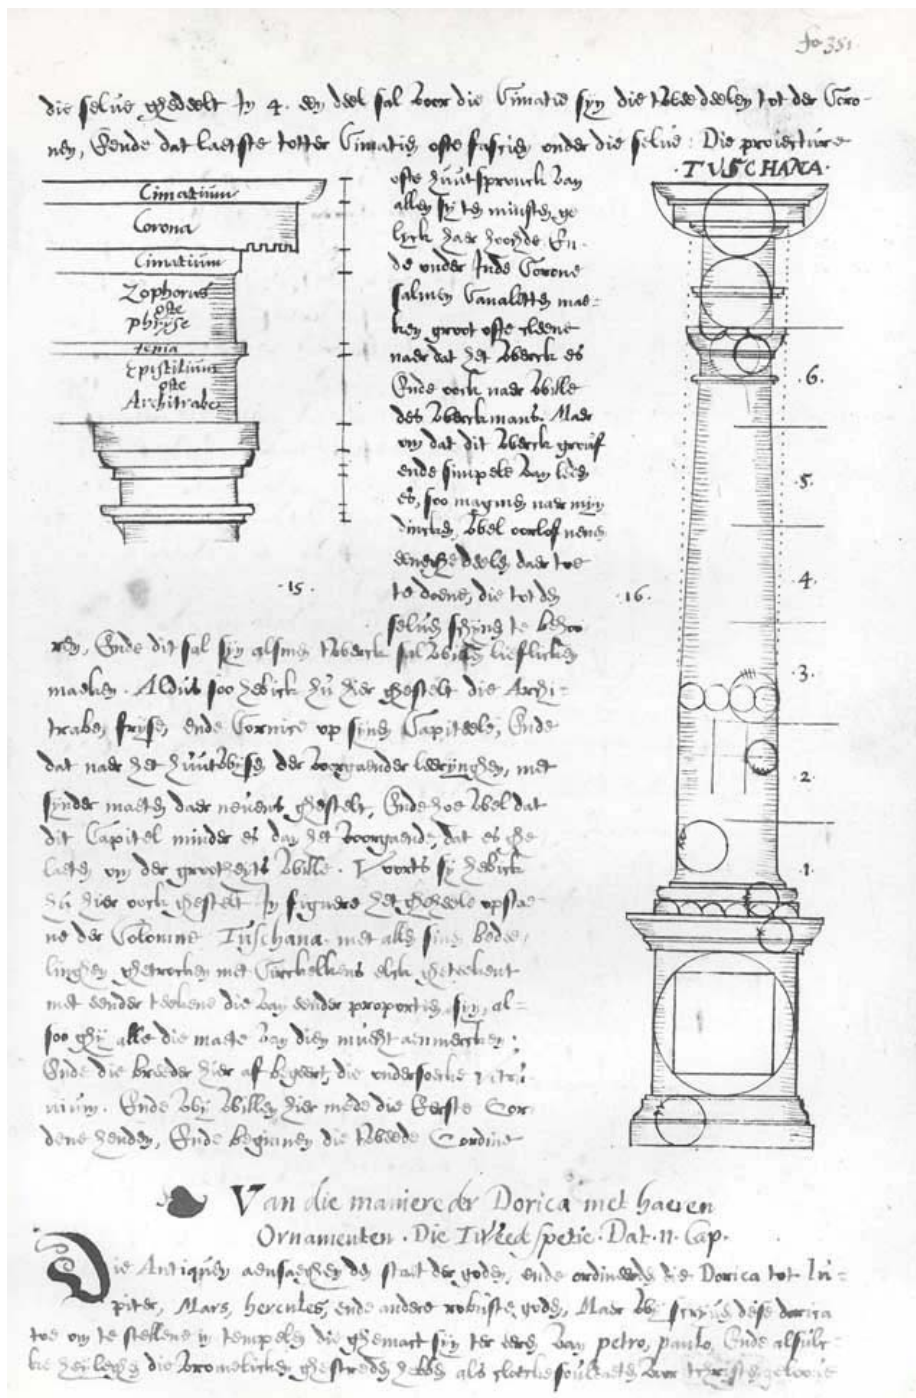 fo 351
die selve ghedeelt Jn 4. een deel sal voor die Cimatie syn die twee deelen tot der Coro-
nen, Ende dat laetste totter Cimatien ofte fascien onder die selve: Die proiecture
ofte huutspronck van
allen sy ten minsten ge
lyck haer hoochde En-
de onder Jnde Corone
salmen Canaletten mae-
ken groot ofte cleene
naer dat het werck es
Ende oock naer wille
des werckmans. Maer
om dat dit werck grouf
ende simpele van leden
es, soo magmen naer myn
duncken, wel oorlof nemen
eeneghe deelen daer toe
te doene, die tot den
selven schynen te behoo
Cimatium
Corona
Cimatium
Zophorus
ofte
phryse
tenia
Epistilium
ofte
Architrabe
15.
TUSCHANA.
16.
6.
5.
4.
3.
2.
1.
ren, Ende dit sal syn alsmen twerck sal willen lieflicken
maeken. Aldus soo heb ick hu hier ghestelt die Archi-
trabe, fryse, ende Cornice op syne Capiteele, Ende
dat naer het huutwysen der voorgaender leerynghen, met
synder maeten daer nevens ghestelt, Ende hoe wel dat
dit Capitel minder es dan het voorgaende, dat es ghe
laeten om der grootheyts wille. Voorts sy heb ick
hu hier oock ghestelt Jn figuere het gheheele opstae
ne der Colomne Tuschana met alle syne bedee-
linghen ghetrocken met Circkelkens elck gheteekent
met eender teekene die van eender proportien syn, al-
soo ghy alle die maete van dien mueght aenmercken:
Ende die breeder hier af begeert, die ondersoecke vitru-
vium. Ende wy willen hier mede die Eerste Cor-
dene henden, Ende beginnen die tweede Cordine
Van die maniere der Dorica met haeren
Ornamenten. Die Tweed spetie. Dat. II. Cap.
Die Antiquen aensaeghen den staet der goden, ende ordineerden die Dorica tot Iu-
piter, Mars, hercules, ende andere robuste goden, Maer wy scryven dese dorica
toe om te stellene in tempelen die ghemaect syn ter eeren van petro, paulo, Ende alsulc-
ke heylegen die vromelicken ghestreden hebben als cloecke souldaeten voor tchristen geloove